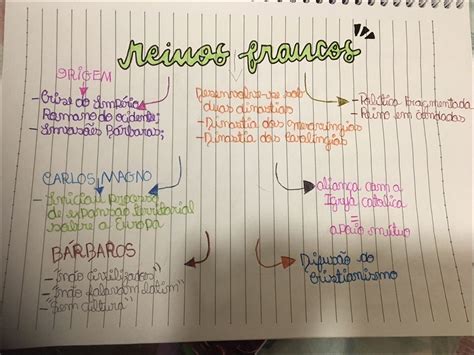 reinos francos
ORIGEM
- Crise do Império
Romano do ocidente;
- Invasões Bárbaras;
Desenvolve-se sob
duas dinastias
- Dinastia dos merovíngios
- Dinastia dos Carolíngios
- Política Fragmentada
- Reino em condados
CARLOS MAGNO
- Iniciou processo
de expansão territorial
sobre a Europa
aliança com a
Igreja católica
=
apoio mútuo
BÁRBAROS
- "não civilizados"
- "não falavam latim"
- "Sem cultura"
Difusão do
cristianismo